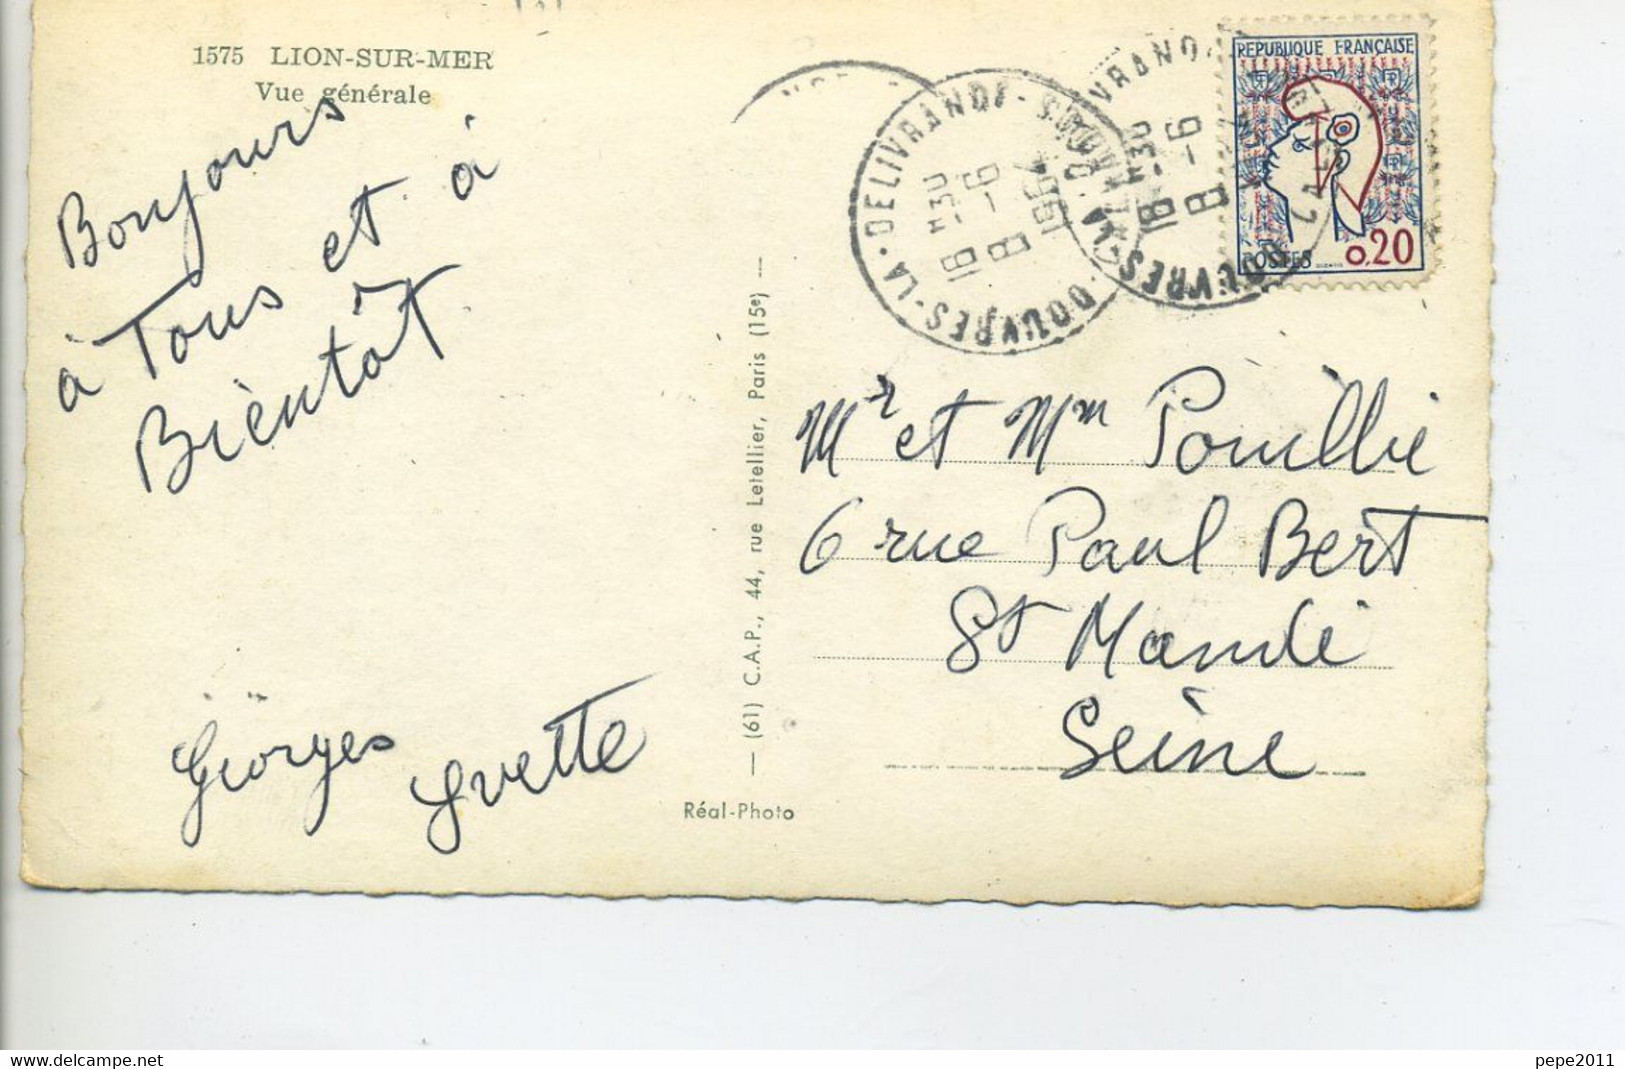 1575 LION-SUR-MER
Vue générale
Bonjours
à Tous et à
Bientôt
Georges
Yvette
— (61) C.A.P., 44, rue Letellier, Paris (15e) —
Réal-Photo
DOUVRES-LA-DELIVRANDE
16H30
8-6
1964
DOUVRES-LA-DELIVRANDE
16H30
8-6
REPUBLIQUE FRANÇAISE
POSTES 0,20
Mr et Mm Pouillie
6 rue Paul Bert
St Mandé
Seine
www.delcampe.net
pepe2011